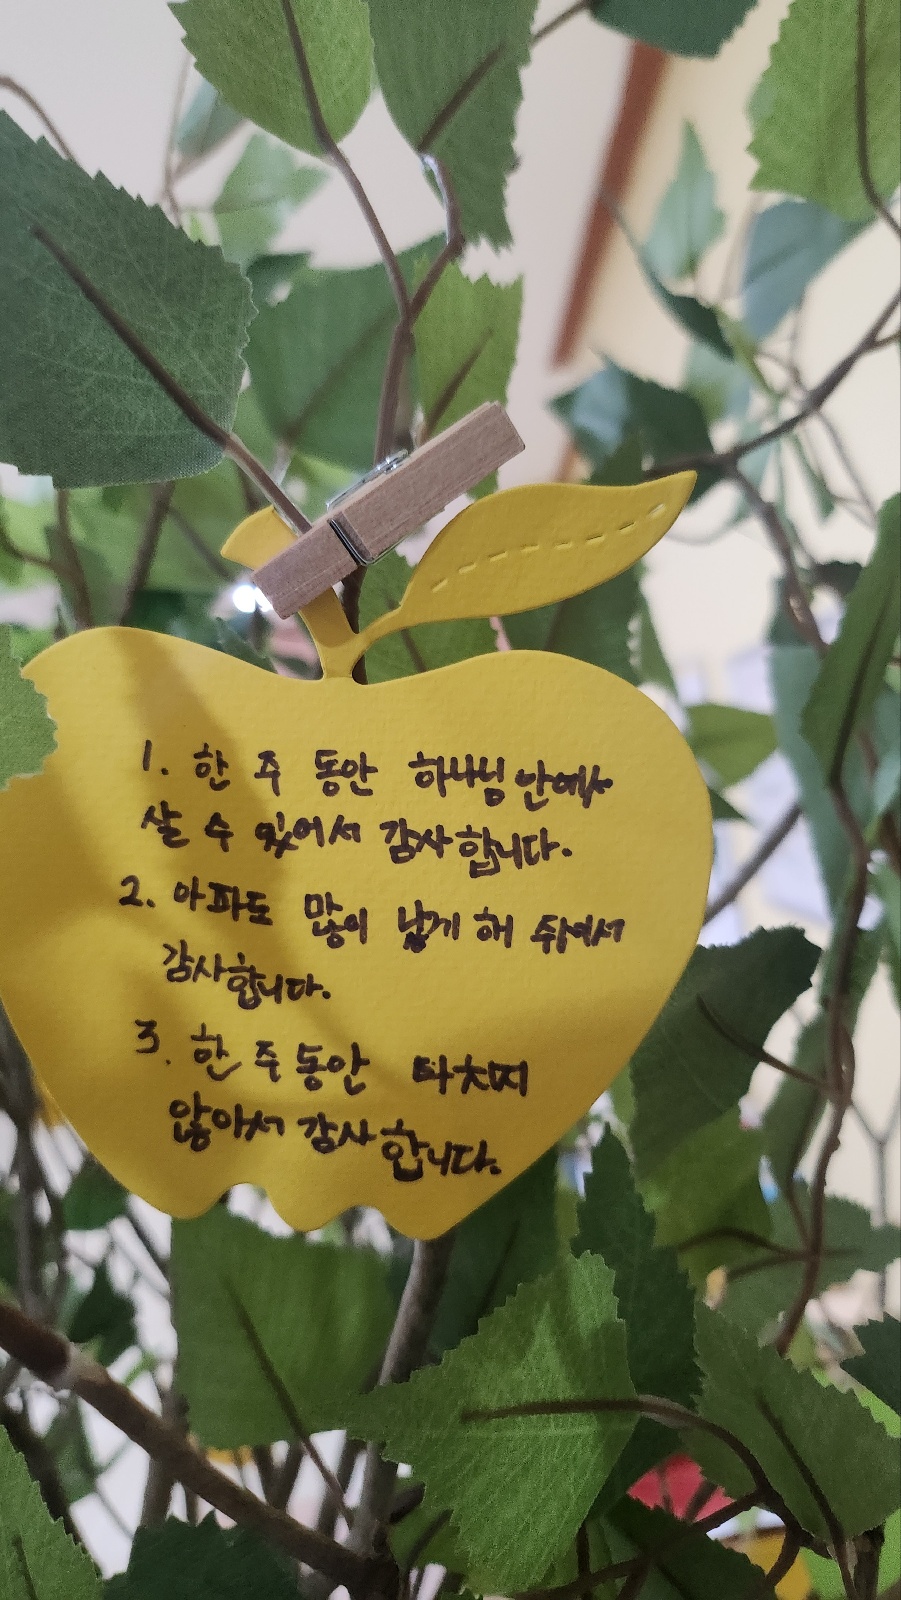 1. 한 주 동안 하나님 안에서
살 수 있어서 감사합니다.
2. 아파도 많이 낢게 해 주셔서
감사합니다.
3. 한 주 동안 다치지
않아서 감사합니다.